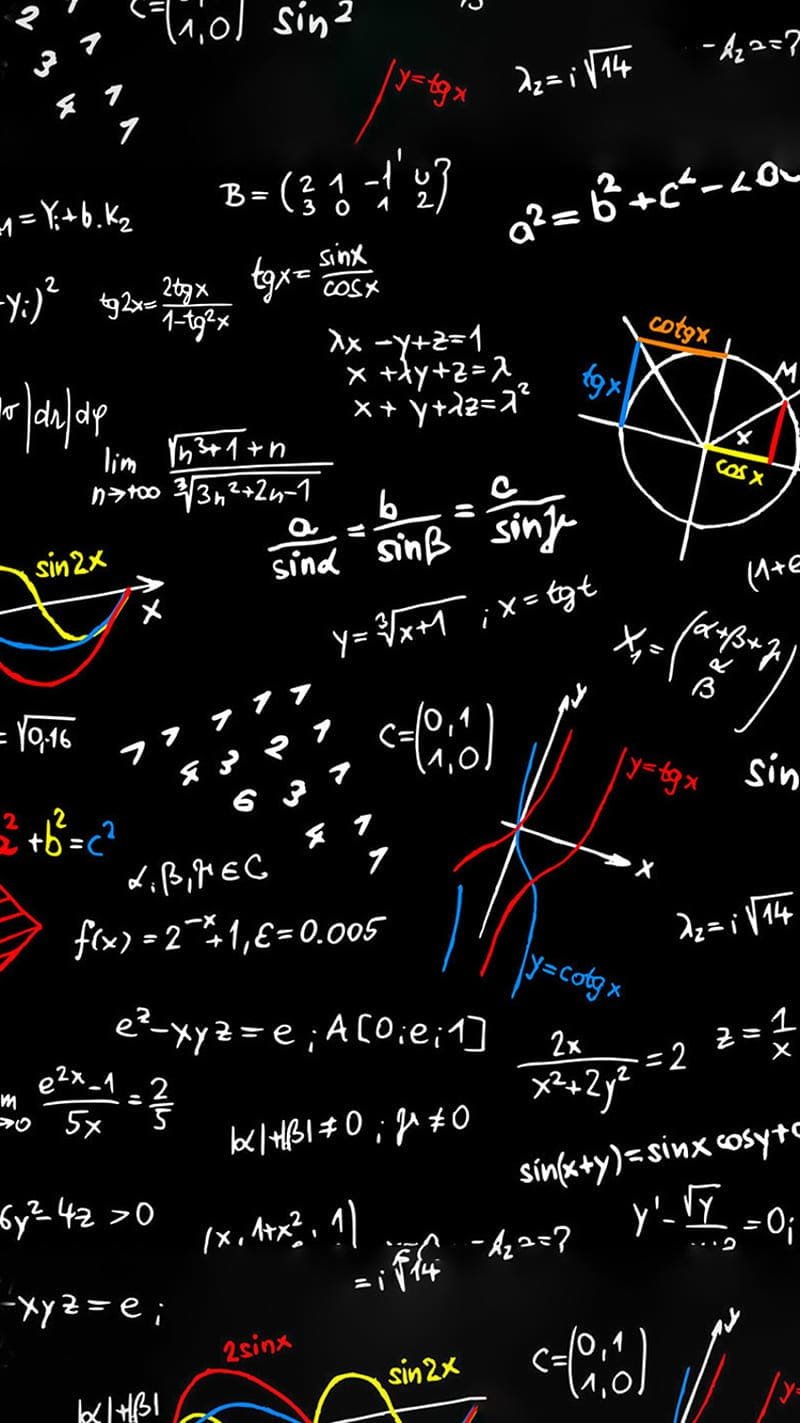 2 1
C=(1,0) sin²
3 1
4 1
1
y=tgx
λ₂=i√14
-λ₂ 2=?
B=(2 1 -1 0
3 0 1 2)
a²=b²+c²-2
=Yᵢ+b.K₂
yᵢ)²
tg2x=2tgx/1-tg²x
tgx=sinx/cosx
λx-y+z=1
x+λy+z=λ
x+y+λz=λ²
cotgx
tgx
M
x
cosx
|dr|dφ
lim n→+∞ √n³+1+n/∛3n²+2n-1
a/sinα=b/sinβ=c/sinγ
sin2x
x
(1+e
y=∛x+1 ; x=tgt
X₁=(α+β+γ
α
β)
=√0,16
1 1 1 1 1
4 3 2 1
6 3 1
4 1
1
C=(0,1
1,0)
y
y=tgx
sin
²+b²=c²
α,β,γ∈C
x
f(x)=2⁻ˣ+1,ε=0.005
λ₂=i√14
y=cotgx
e^z-xyz=e ; A[0;e;1]
2x/x²+2y²=2
z=1/x
m →0 e²ˣ-1/5x=2/5
|α|+|β|≠0 ; γ≠0
sin(x+y)=sinx cosy+
6y²-4z>0
(x, 1+x², 1)
-λ₂ 2=?
y'-√y =0;
=i√14
-xyz=e ;
2sinx
sin2x
C=(0,1
1,0)
y
y=
|α|+|β|